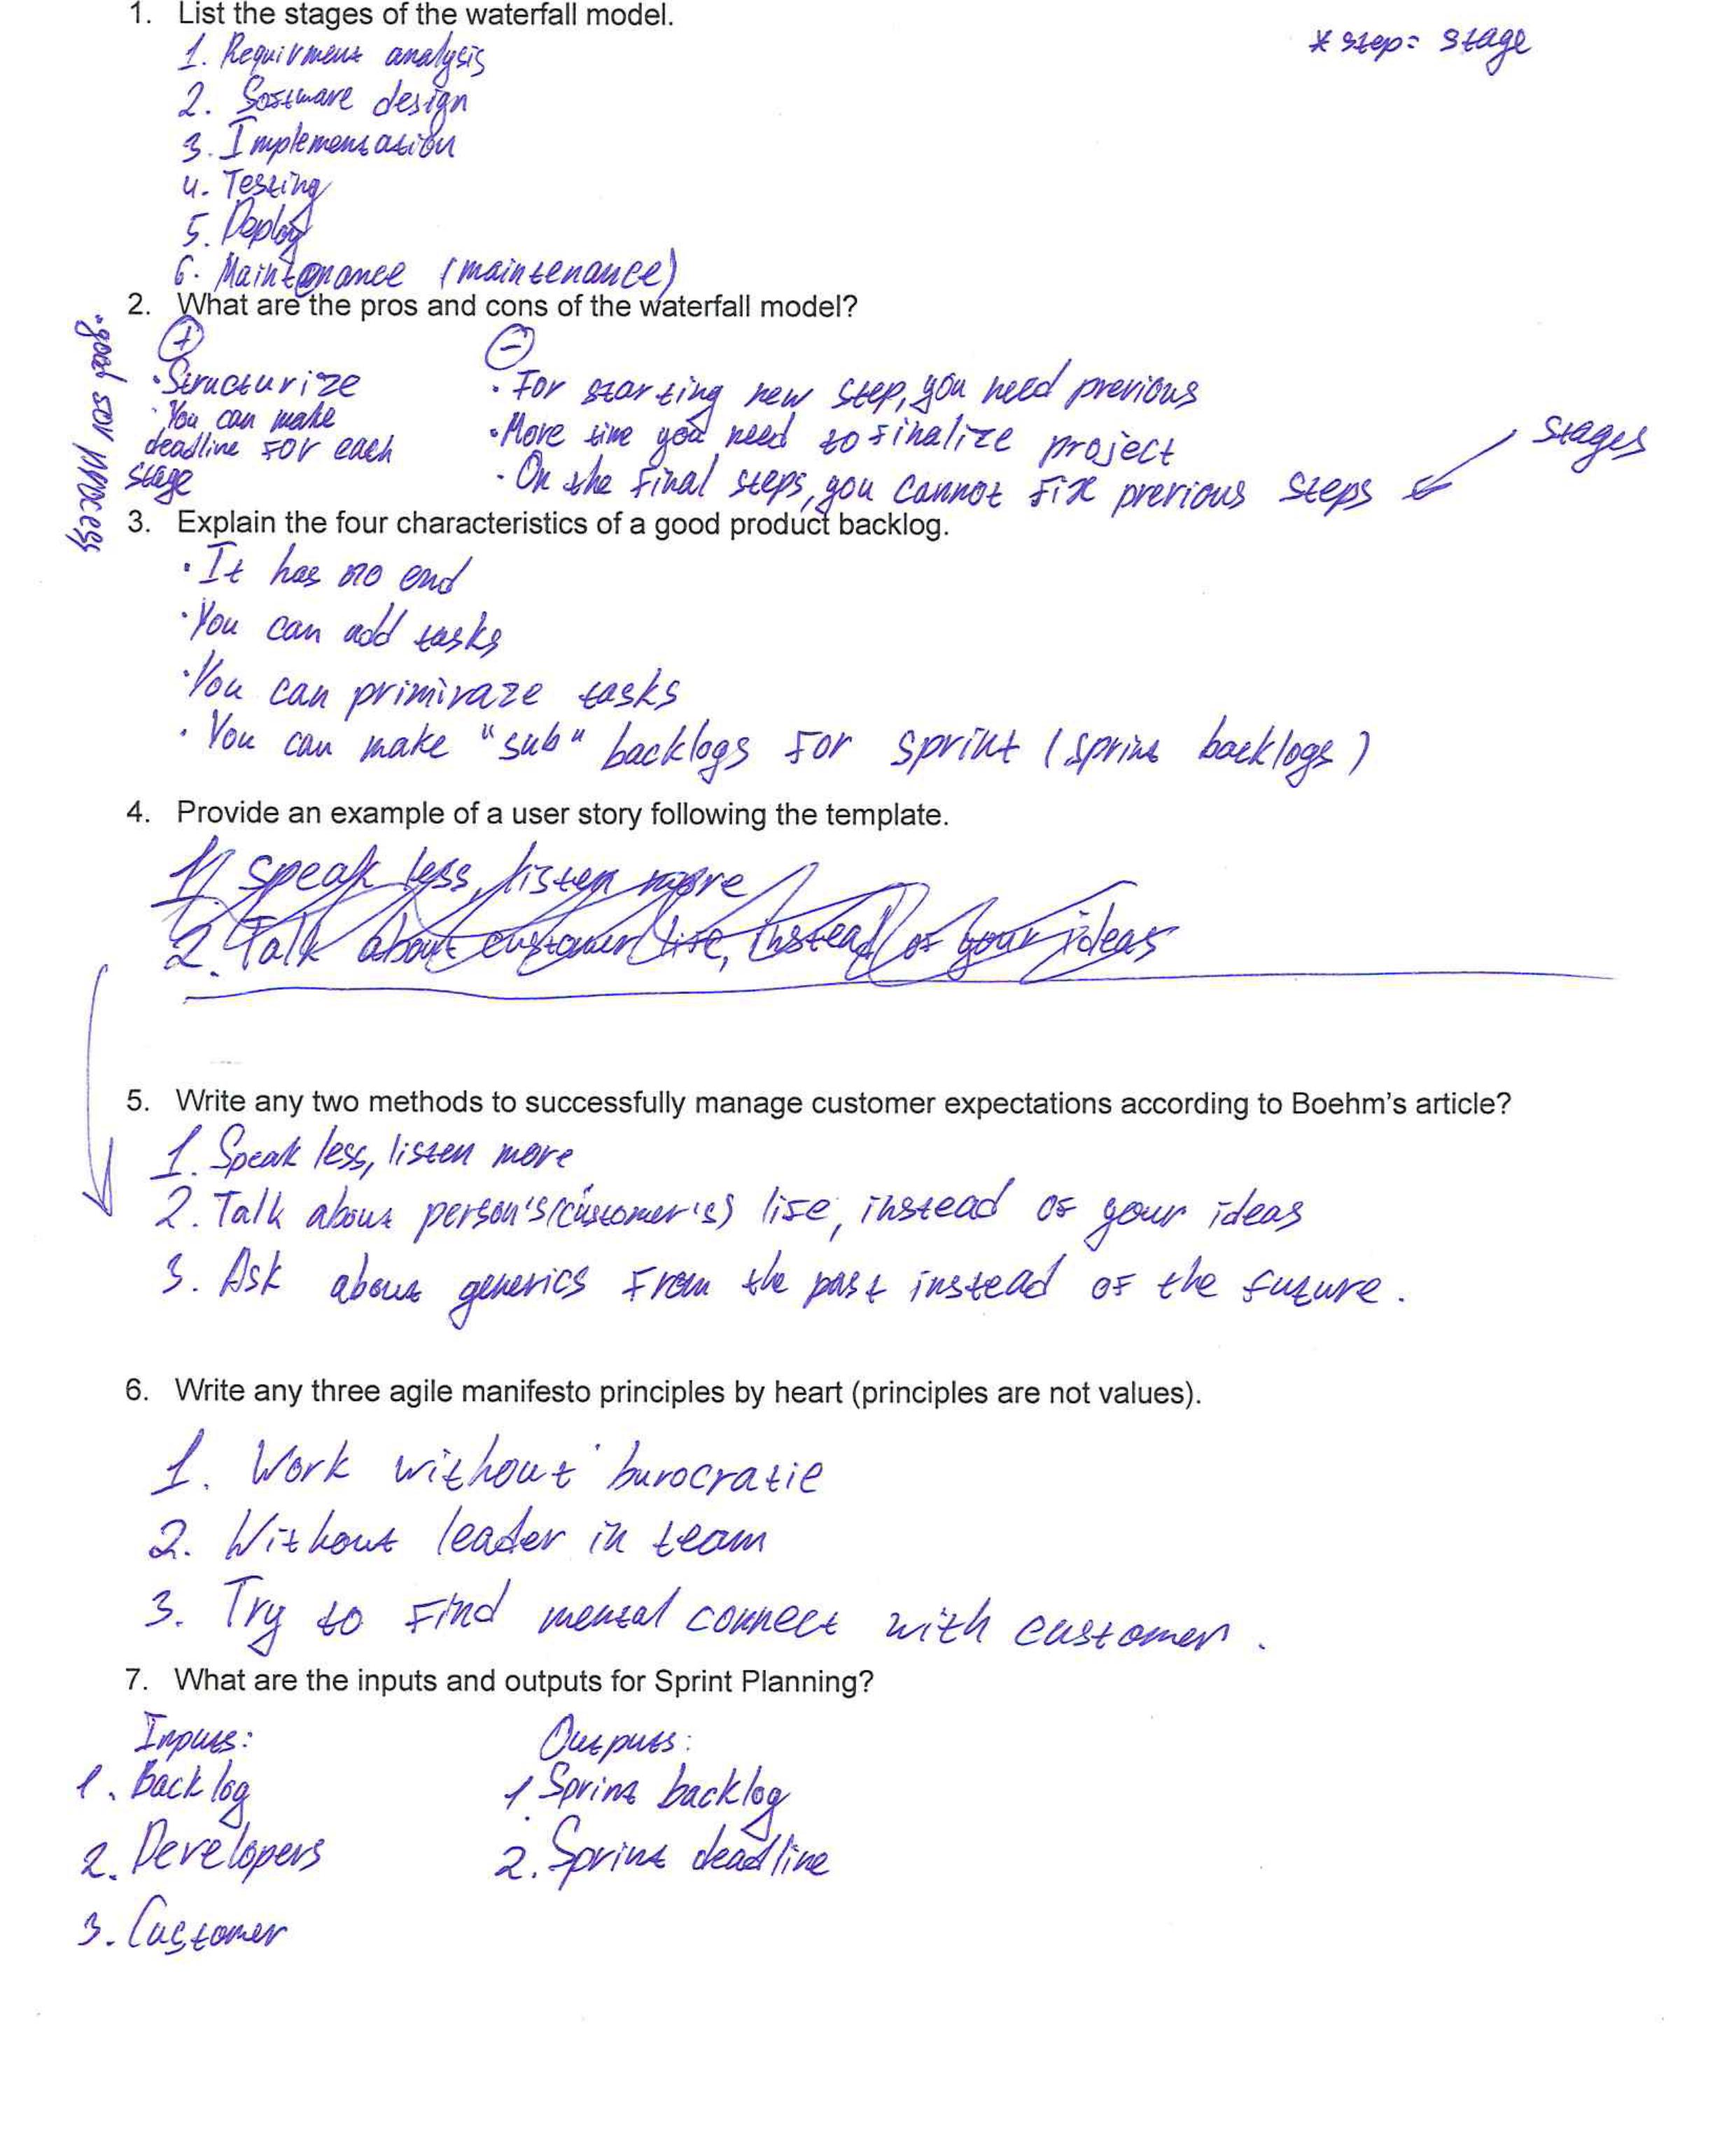 1. List the stages of the waterfall model.
* step = stage
1. Requirment analysis
2. Software design
3. Implementation
4. Testing
5. Deploy
6. Maintenance (maintenance)
2. What are the pros and cons of the waterfall model?
+
• Structurize
• You can make
deadline for each
stage
• good for process
-
• For starting new step, you need previous
• More time you need to finalize project
• On the final steps, you cannot fix previous steps
stages
3. Explain the four characteristics of a good product backlog.
• It has no end
• You can add tasks
• You can primiraze tasks
• You can make "sub" backlogs for sprint (sprint backlogs)
4. Provide an example of a user story following the template.
1. Speak less, listen more
2. Talk about customer life, instead of your ideas
5. Write any two methods to successfully manage customer expectations according to Boehm's article?
1. Speak less, listen more
2. Talk about person's (customer's) life, instead of your ideas
3. Ask about generics from the past instead of the future.
6. Write any three agile manifesto principles by heart (principles are not values).
1. Work without burocratie
2. Without leader in team
3. Try to find mental connect with customer.
7. What are the inputs and outputs for Sprint Planning?
Inputs:
1. Backlog
2. Developers
3. Customer
Outputs:
1. Sprint backlog
2. Sprint deadline